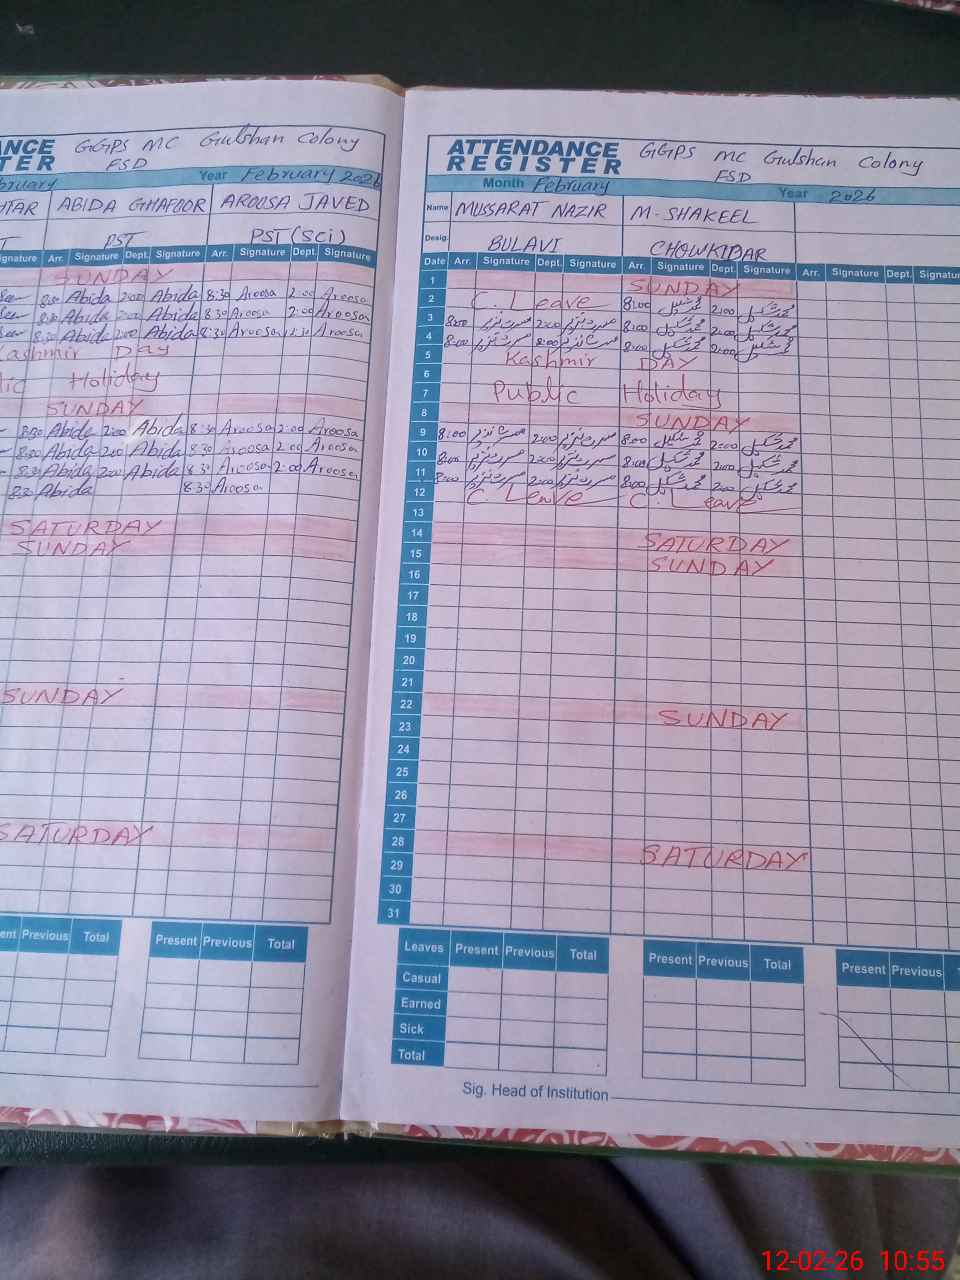 ANCE
TER
GGPS MC Gulshan Colony
FSD
bruary Year February 2026
HTAR ABIDA GHAFOOR AROOSA JAVED
T PST PST (Sci)
ignature Arr. Signature Dept. Signature Arr. Signature Dept. Signature
SUNDAY
8:30 Abida 2:00 Abida 8:30 Aroosa 2:00 Aroosa
8:30 Abida 2:00 Abida 8:30 Aroosa 2:00 Aroosa
8:30 Abida 2:00 Abida 8:30 Aroosa Aroosa
Kashmir Day
lic Holiday
SUNDAY
8:30 Abida 2:00 Abida 8:30 Aroosa 2:00 Aroosa
Abida 2:00 Abida 8:30 Aroosa 2:00 Aroosa
8:30 Abida 2:00 Abida 8:30 Aroosa 2:00 Aroosa
8:30 Abida 8:30 Aroosa
SATURDAY
SUNDAY
SUNDAY
SATURDAY
ent Previous Total Present Previous Total
ATTENDANCE
REGISTER
GGPS MC Gulshan Colony
FSD
Month February Year 2026
Name MUSSARAT NAZIR M. SHAKEEL
Desig. BULAVI CHOWKIDAR
Date Arr. Signature Dept. Signature Arr. Signature Dept. Signature Arr. Signature Dept. Signatur
1 SUNDAY
2 C. Leave 8:00 محمد شکیل 2:00 محمد شکیل
3 8:00 مسرت نذیر 2:00 مسرت نذیر 8:00 محمد شکیل 2:00 محمد شکیل
4 8:00 مسرت نذیر 2:00 مسرت نذیر 8:00 محمد شکیل 2:00 محمد شکیل
5 Kashmir DAY
6
7 Public Holiday
8 SUNDAY
9 8:00 مسرت نذیر 2:00 مسرت نذیر 8:00 محمد شکیل 2:00 محمد شکیل
10 8:00 مسرت نذیر 2:00 مسرت نذیر 8:00 محمد شکیل 2:00 محمد شکیل
11 8:00 مسرت نذیر 2:00 مسرت نذیر 8:00 محمد شکیل 2:00 محمد شکیل
12 C. Leave C. Leave
13
14 SATURDAY
15 SUNDAY
16
17
18
19
20
21
22 SUNDAY
23
24
25
26
27
28 SATURDAY
29
30
31
Leaves Present Previous Total Present Previous Total Present Previous
Casual
Earned
Sick
Total
Sig. Head of Institution
12-02-26 10:55